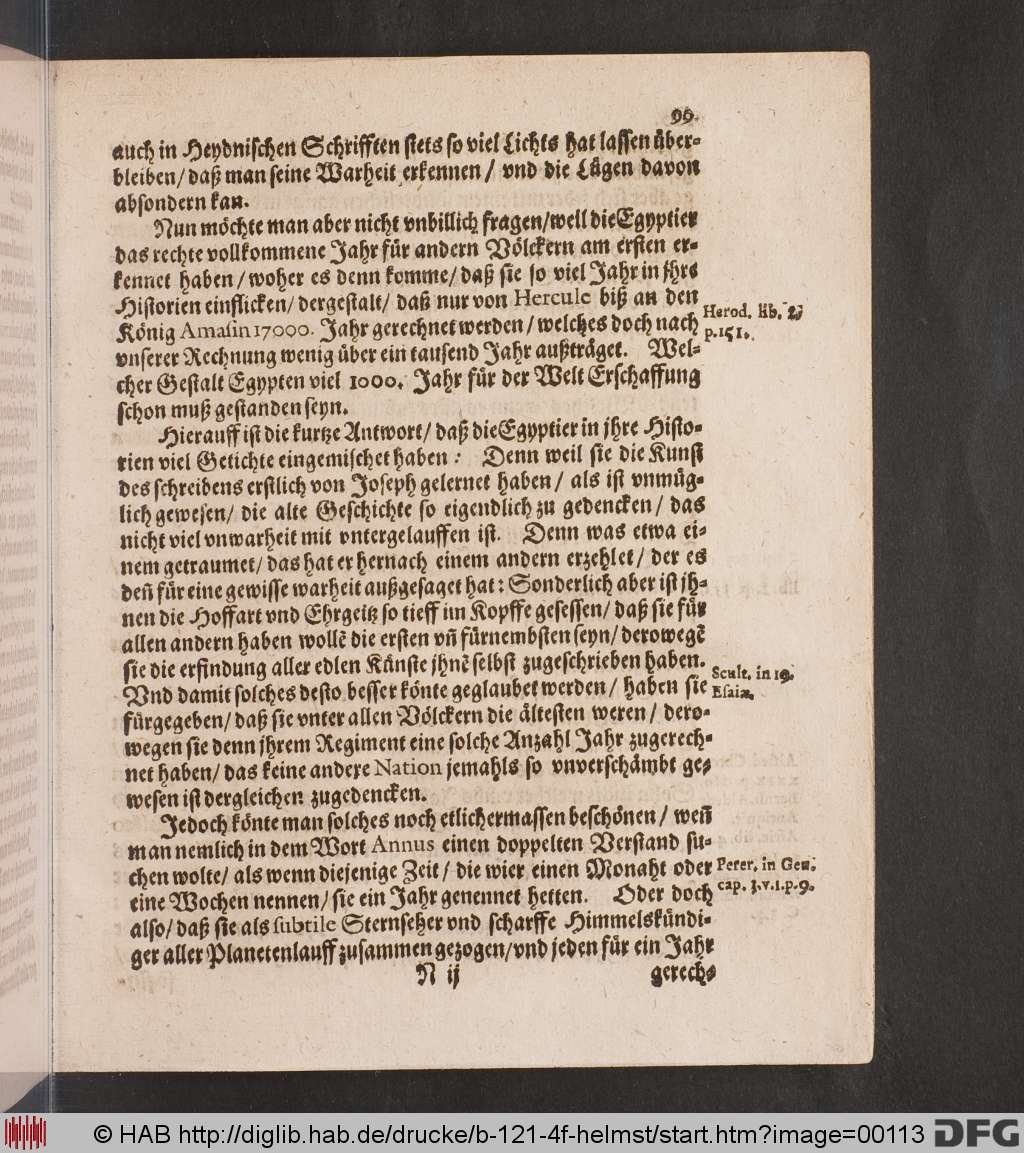 99.
auch in Heydnischen Schrifften stets so viel Lichts hat lassen über-
bleiben/ daß man seine Warheit erkennen/ vnd die Lügen davon
absondern kan.
Nun möchte man aber nicht vnbillich fragen/weil die Egyptier
das rechte vollkommene Jahr für andern Völckern am ersten er-
kennet haben/ woher es denn komme/ daß sie so viel Jahr in jhre
Historien einflicken/ dergestalt/ daß nur von Hercule biß an den
König Amasin 17000. Jahr gerechnet werden/ welches doch nach
vnserer Rechnung wenig über ein tausend Jahr außträget. Wel-
cher Gestalt Egypten viel 1000. Jahr für der Welt Erschaffung
schon muß gestanden seyn.
Herod. lib. 2.
p.151.
Hierauff ist die kurtze Antwort/ daß die Egyptier in jhre Histo-
rien viel Getichte eingemischet haben: Denn weil sie die Kunst
des schreibens erstlich von Joseph gelernet haben/ als ist vnmüg-
lich gewesen/ die alte Geschichte so eigendlich zu gedencken/ das
nicht viel vnwarheit mit vntergelauffen ist. Denn was etwa ei-
nem getraumet/ das hat er hernach einem andern erzehlet/ der es
deñ für eine gewisse warheit außgesaget hat: Sonderlich aber ist jh-
nen die Hoffart vnd Ehrgeitz so tieff im Kopffe gesessen/ daß sie für
allen andern haben wollẽ die ersten vñ fürnembsten seyn/ derowegẽ
sie die erfindung aller edlen Künste jhnẽ selbst zugeschrieben haben.
Vnd damit solches desto besser könte geglaubet werden/ haben sie
fürgegeben/ daß sie vnter allen Völckern die ältesten weren/ dero-
wegen sie denn jhrem Regiment eine solche Anzahl Jahr zugerech-
net haben/ das keine andere Nation jemahls so vnverschämbt ge-
wesen ist dergleichen zugedencken.
Scult. in 19.
Esaiæ.
Jedoch könte man solches noch etlichermassen beschönen/ weñ
man nemlich in dem Wort Annus einen doppelten Verstand su-
chen wolte/ als wenn diejenige Zeit/ die wier einen Monaht oder
eine Wochen nennen/ sie ein Jahr genennet hetten. Oder doch
also/ daß sie als subtile Sternseher vnd scharffe Himmelskündi-
ger aller Planetenlauff zusammen gezogen/vnd jeden für ein Jahr
Perer. in Gen.
cap. 3.v.1.p.9.
N ij
gerech-
© HAB http://diglib.hab.de/drucke/b-121-4f-helmst/start.htm?image=00113
DFG